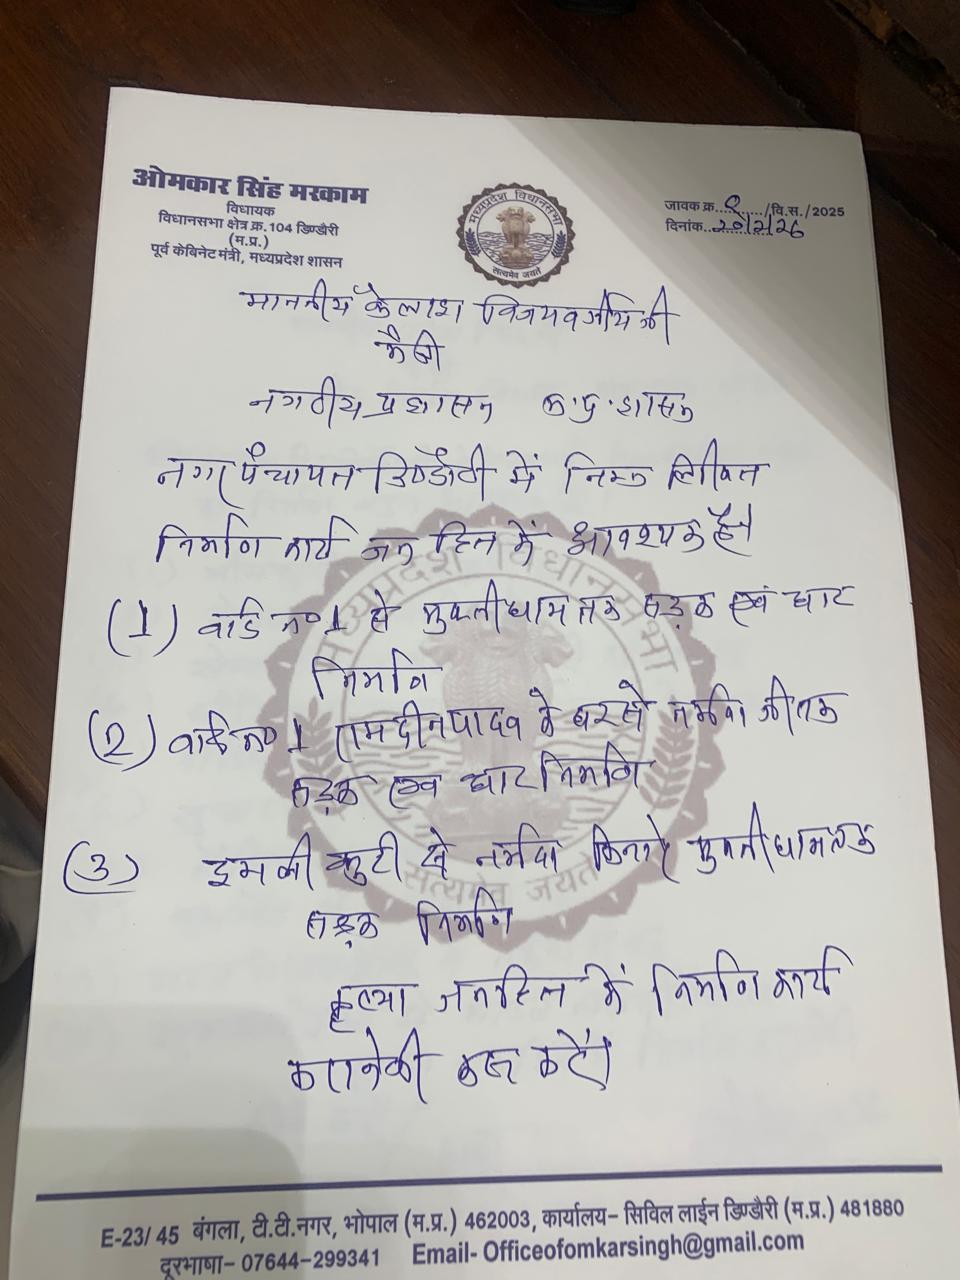 ओमकार सिंह मरकाम
विधायक
विधानसभा क्षेत्र क्र.104 डिण्डौरी
(म.प्र.)
पूर्व केबिनेट मंत्री, मध्यप्रदेश शासन
मध्यप्रदेश विधानसभा
सत्यमेव जयते
जावक क्र....../वि.स./2025
दिनांक..20/2/26
माननीय कैलाश विजयवर्गीय जी
मंत्री
नगरीय प्रशासन म.प्र. शासन
नगर पंचायत डिण्डौरी में निम्न लिखित
निर्माण कार्य जन हित में आवश्यक है।
(1) वार्ड न० 1 से मुक्तीधाम तक सड़क एवं घाट
निर्माण
(2) वार्ड न० 1 रामदीन यादव के घर से नर्मदा जी तक
सड़क एवं घाट निर्माण
(3) इमली कुटी से नर्मदा किनारे मुक्तीधाम तक
सड़क निर्माण
कृप्या जनहित में निर्माण कार्य
कराने की कृपा करें।
मध्यप्रदेश विधानसभा
सत्यमेव जयते
E-23/ 45 बंगला, टी.टी.नगर, भोपाल (म.प्र.) 462003, कार्यालय– सिविल लाईन डिण्डौरी (म.प्र.) 481880
दूरभाषा– 07644-299341 Email- Officeofomkarsingh@gmail.com